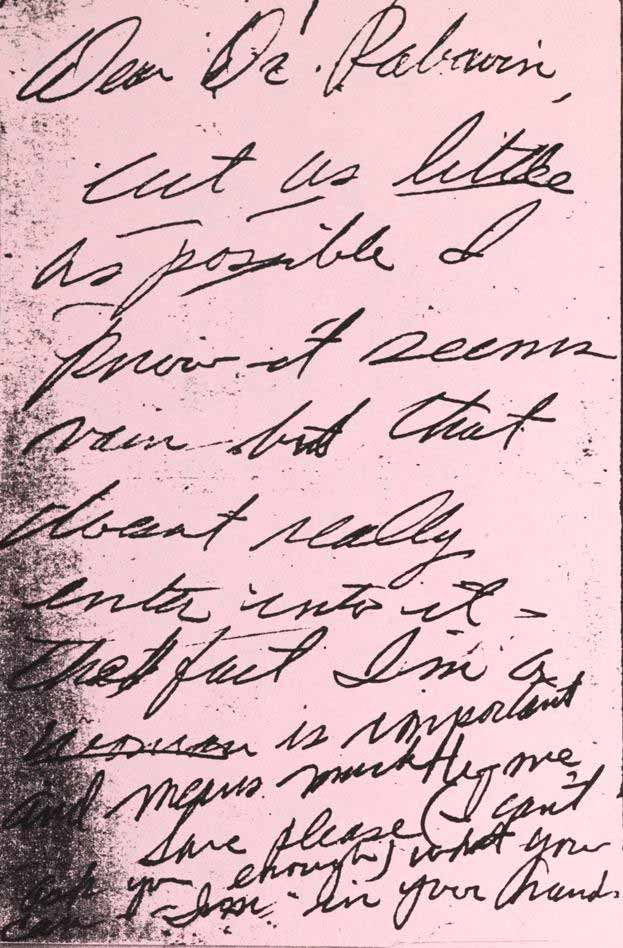 Dear Dr. Rabwin,
cut as little
as possible I
know it seems
vain but that
doesnt really
enter into it -
the fact I'm a
woman is important
and means much to me.
Save please (I can't
ask you enough) what you
can - I'm in your hands.